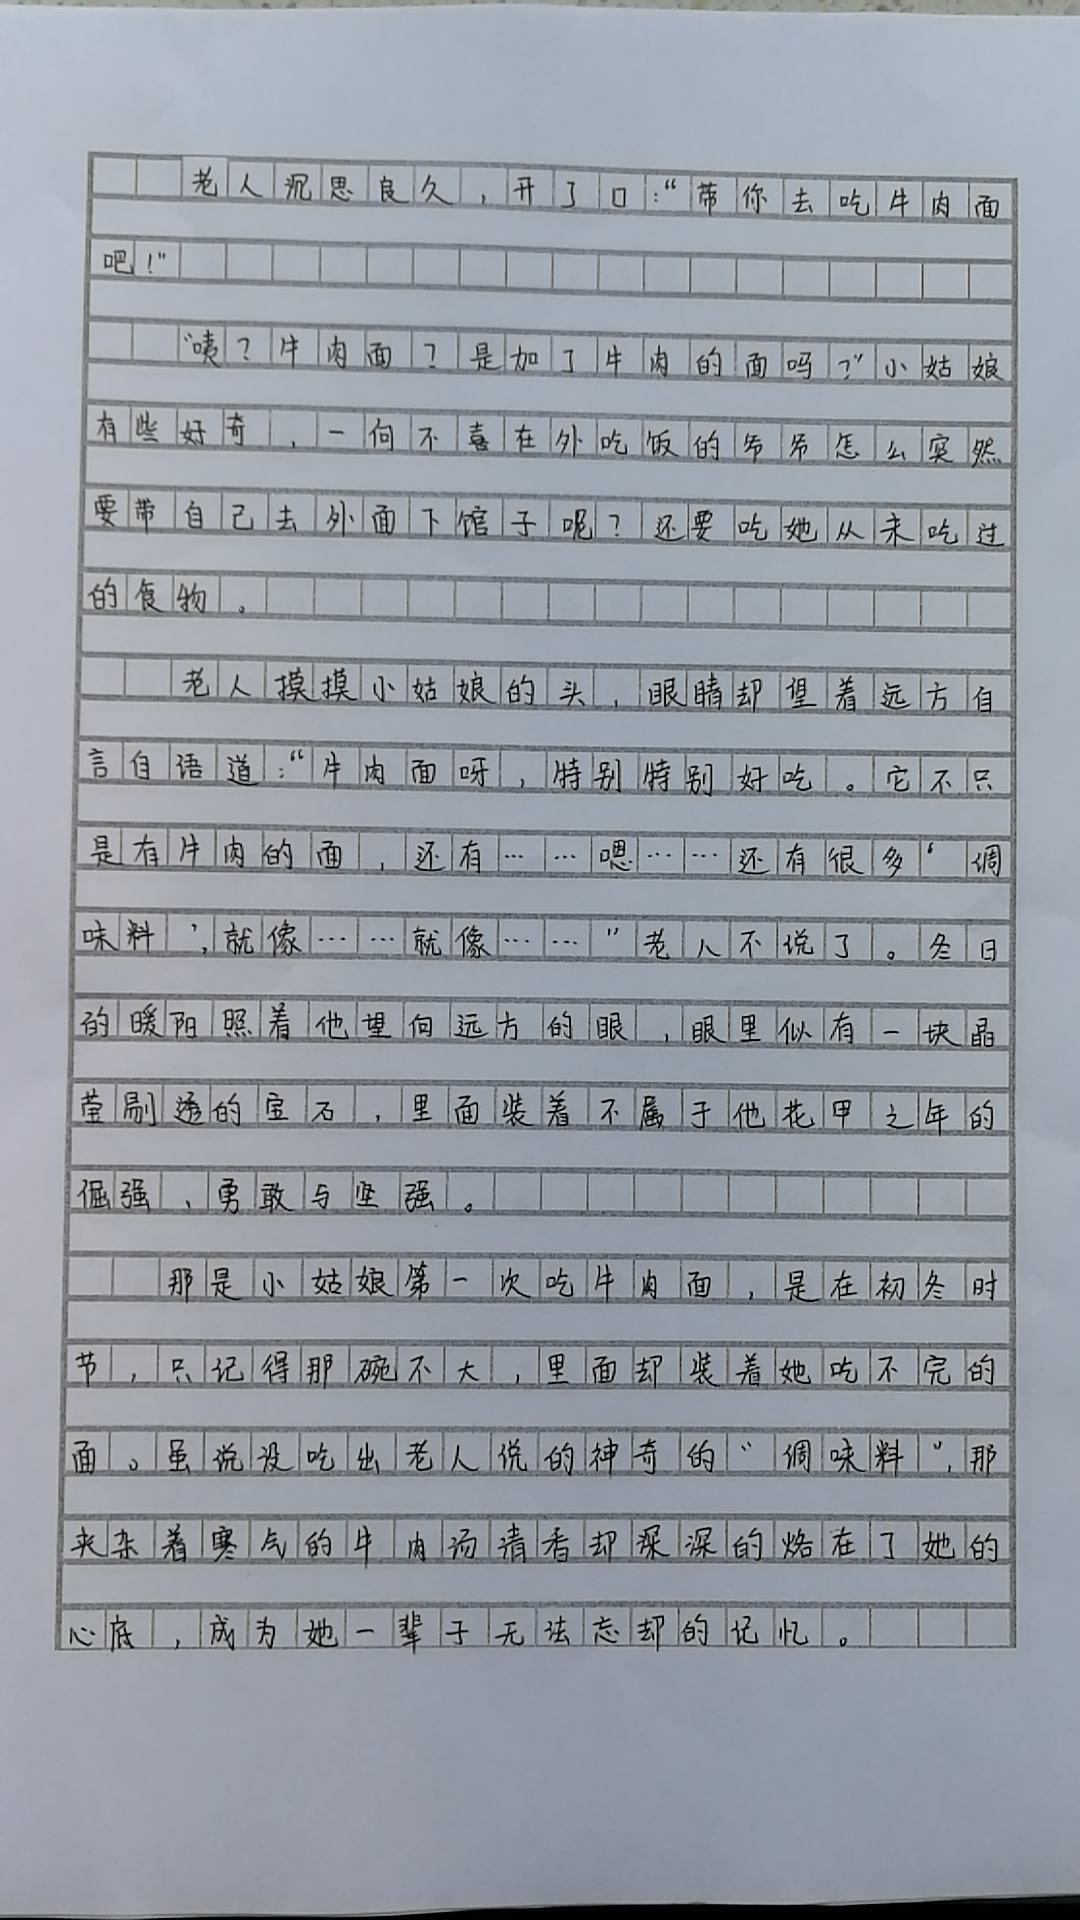 老人沉思良久，开了口：“带你去吃牛肉面
吧！”
“咦？牛肉面？是加了牛肉的面吗？”小姑娘
有些好奇，一向不喜在外吃饭的爷爷怎么突然
要带自己去外面下馆子呢？还要吃她从未吃过
的食物。
老人摸摸小姑娘的头，眼睛却望着远方自
言自语道：“牛肉面呀，特别特别好吃。它不只
是有牛肉的面，还有……嗯……还有很多‘调
味料’，就像……就像……”老人不说了。冬日
的暖阳照着他望向远方的眼，眼里似有一块晶
莹剔透的宝石，里面装着不属于他花甲之年的
倔强、勇敢与坚强。
那是小姑娘第一次吃牛肉面，是在初冬时
节，只记得那碗不大，里面却装着她吃不完的
面。虽说没吃出老人说的神奇的“调味料”，那
夹杂着寒气的牛肉汤清香却深深的烙在了她的
心底，成为她一辈子无法忘却的记忆。